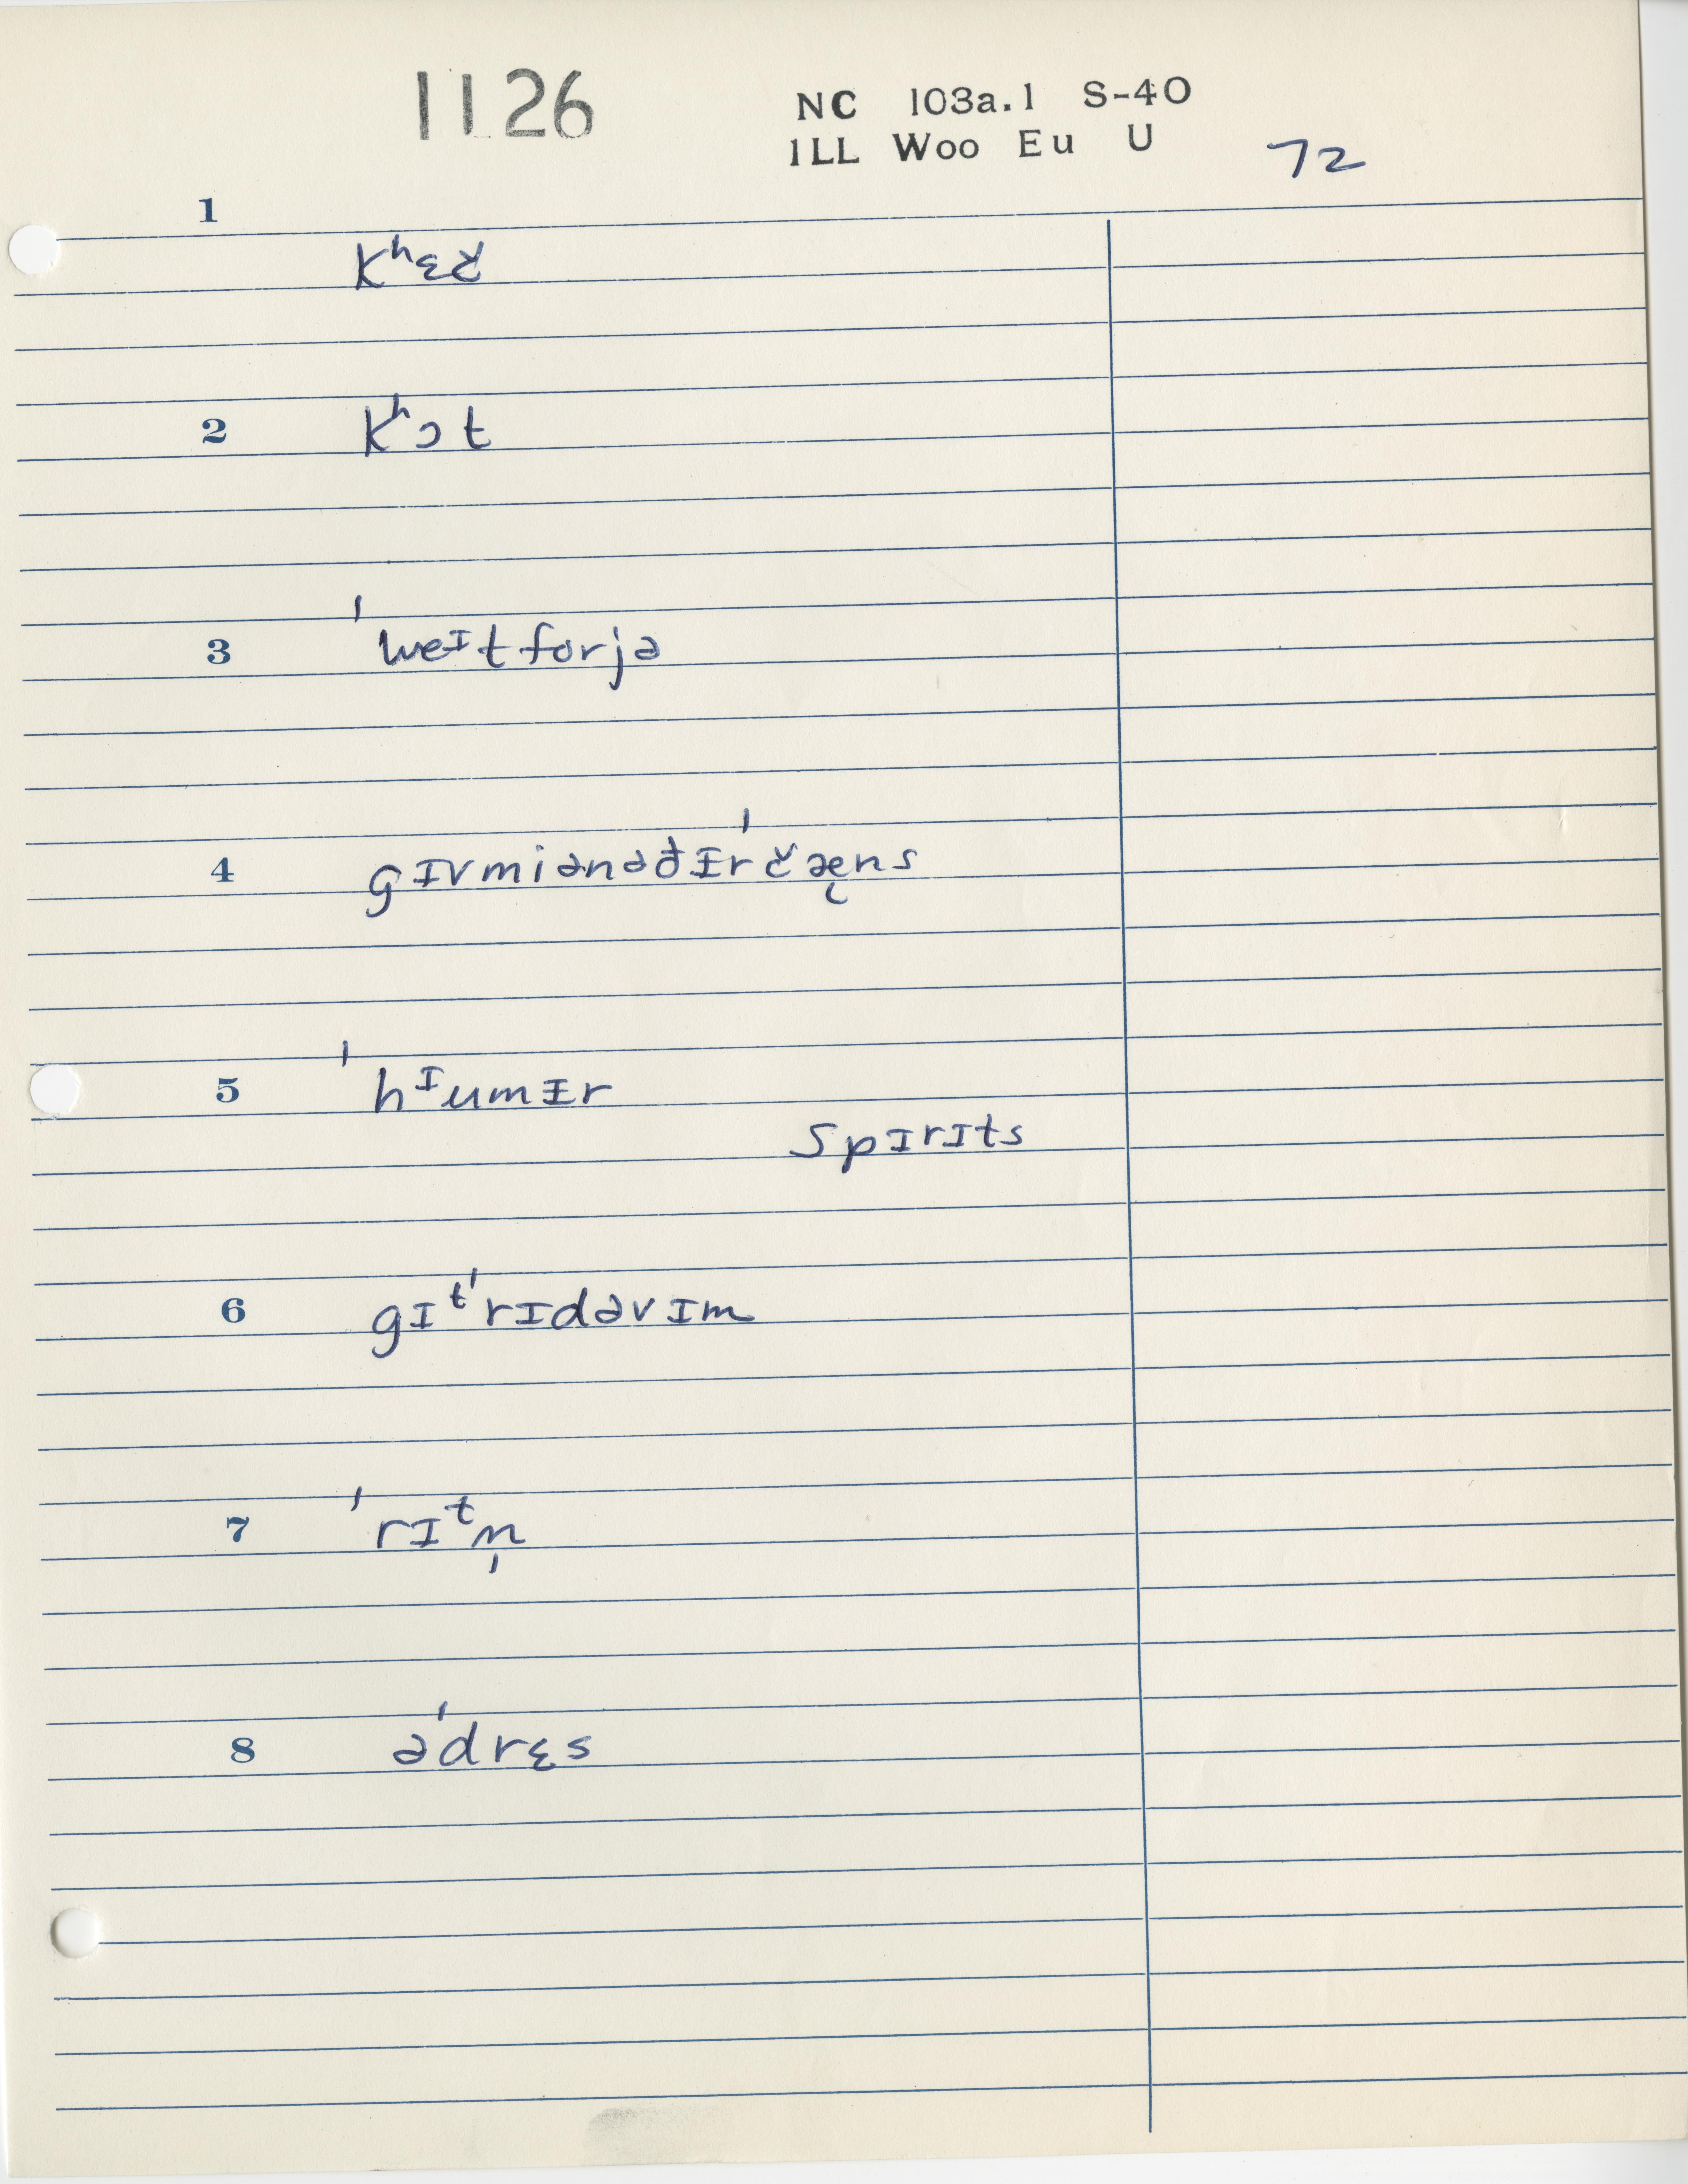 1126
NC 103a.1 S-40
ILL Woo Eu U
72
1
kʰɛč̵
2
kʰɔt
3 ˈweᴵtforjə
4 gɪvmiənəðɨrˈčæ̨ns
5 ˈhᴵumɨr
spɪrɪts
6 gɪᵗˈrɪdəvɪm
7 ˈrɪᵗn̩
8 əˈdrɛs